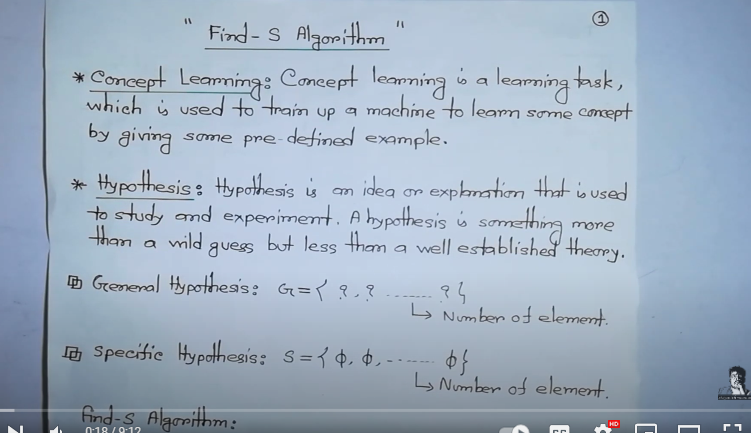 " Find-S Algorithm "
1
* Concept Learning: Concept learning is a learning task,
which is used to train up a machine to learn some concept
by giving some pre-defined example.
* Hypothesis: Hypothesis is an idea or explanation that is used
to study and experiment. A hypothesis is something more
than a wild guess but less than a well established theory.
General Hypothesis: G={ ?, ? ...... ? }
↳ Number of element.
Specific Hypothesis: S={ ϕ, ϕ, ...... ϕ}
↳ Number of element.
Find-S Algorithm:
0:18 / 9:12
CC
HD